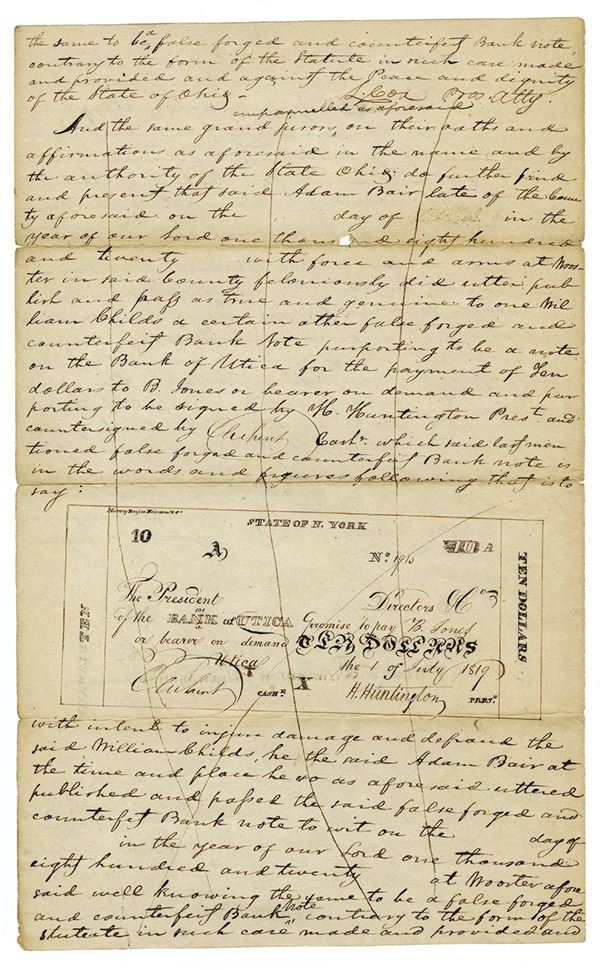 the same to be a false forged and counterfeit Bank note,
contrary to the form of the Statute in such case made
and provided and against the Peace and dignity
of the State of Ohio — Pros. Atty.
empannelled as aforesaid
And the same grand jurors, on their oaths and
affirmations as aforesaid in the name and by
the authority of the State Ohio; do further find
and present that said Adam Bair late of the Coun
ty aforesaid on the day of in the
year of our Lord one thousand eight hundred
and twenty with force and arms at Woos-
ter in said County feloniously did utter pub
lish and pass as true and genuine to one Wil
liam Childs a certain other false forged and
counterfeit Bank Note purporting to be a note
on the Bank of Utica for the payment of Ten
dollars to B. Jones or bearer on demand and pur
porting to be signed by H. Huntington Prest. and
countersigned by Cashr. which said last men
tioned false forged and counterfeit Bank note is
in the words and figures following that is to
say:
STATE OF N. YORK
10 A No. 1915 10 A
The President Directors & Co
of the BANK of UTICA promise to pay B Jones
or bearer on demand TEN DOLLARS
Utica the 1 of July 1819
CASHR. X H. Huntington PREST.
TEN
TEN DOLLARS
with intent to injure damage and defraud the
said William Childs, he the said Adam Bair at
the time and place he so as aforesaid uttered
published and passed the said false forged and
counterfeit Bank note to wit on the day of
in the year of our Lord one thousand
eight hundred and twenty at Wooster afore
said well knowing the same to be a false forged
and counterfeit Bank note, contrary to the form of the
Statute in such case made and provided and